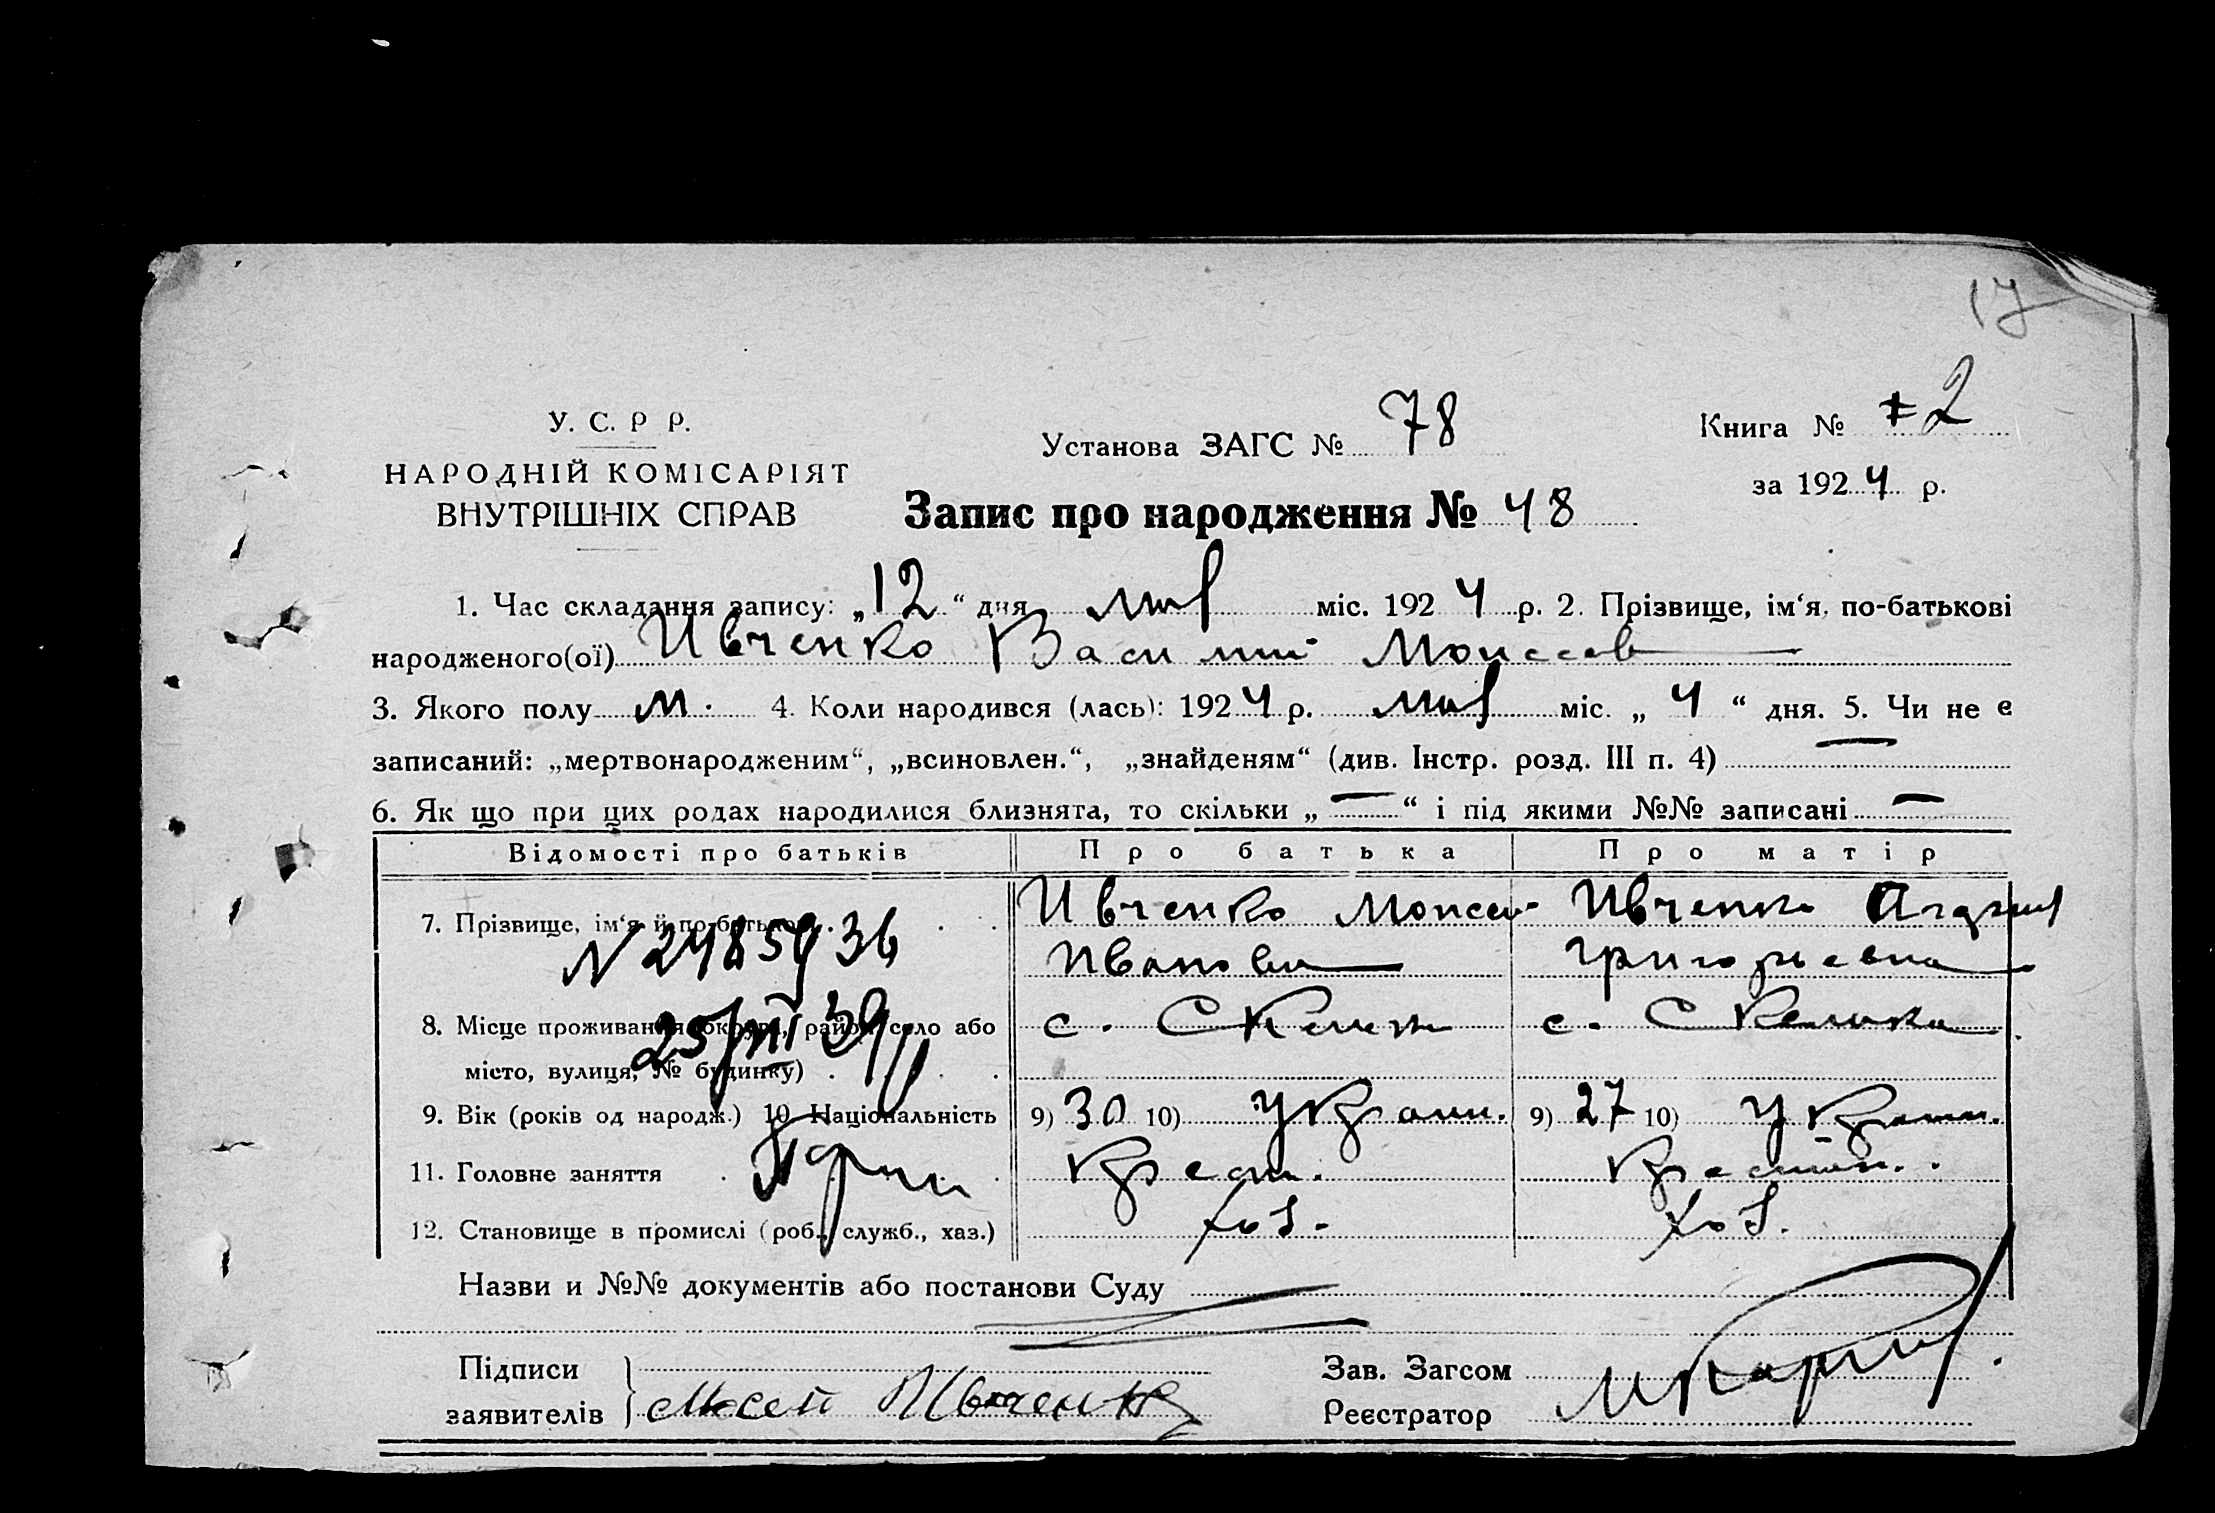 17
У. С. Р Р.
НАРОДНІЙ КОМІСАРІЯТ
ВНУТРІШНІХ СПРАВ
Установа ЗАГС № 78
Книга № 2
за 1924 р.
Запис про народження № 48
1. Час складання запису: „12“ дня міс. 1924 р. 2. Прізвище, ім‘я, по-батькові
народженого(ої) Ивченко Василий Моисеев
3. Якого полу м. 4. Коли народився (лась): 1924 р. міс. „4“ дня. 5. Чи не є
записаний: „мертвонародженим“, „всиновлен.“, „знайденям“ (див. Інстр. розд. III п. 4) —
6. Як що при цих родах народилися близнята, то скільки „—“ і під якими №№ записані —
Відомості про батьків Про батька Про матір
7. Прізвище, ім‘я й по-батькові . . . Ивченко Моисей Ивченко
N 248594 36
Иванович Григорьевна
8. Місце проживання (округа, район, село або с. Скельки с. Скелька
25/VII 39
місто, вулиця, № будинку) . . .
9. Вік (років од народж.) 10. Національність 9) 30 10) Украин. 9) 27 10) Украин.
11. Головне заняття . . . Крест. Крестян.
12. Становище в промислі (роб., служб., хаз.) хоз. хоз.
Назви и №№ документів або постанови Суду
Підписи
заявителів Мосей Ивченко
Зав. Загсом
Реєстратор